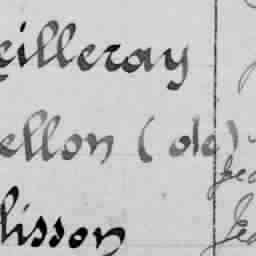 eilleray
ellon (de)
lisson